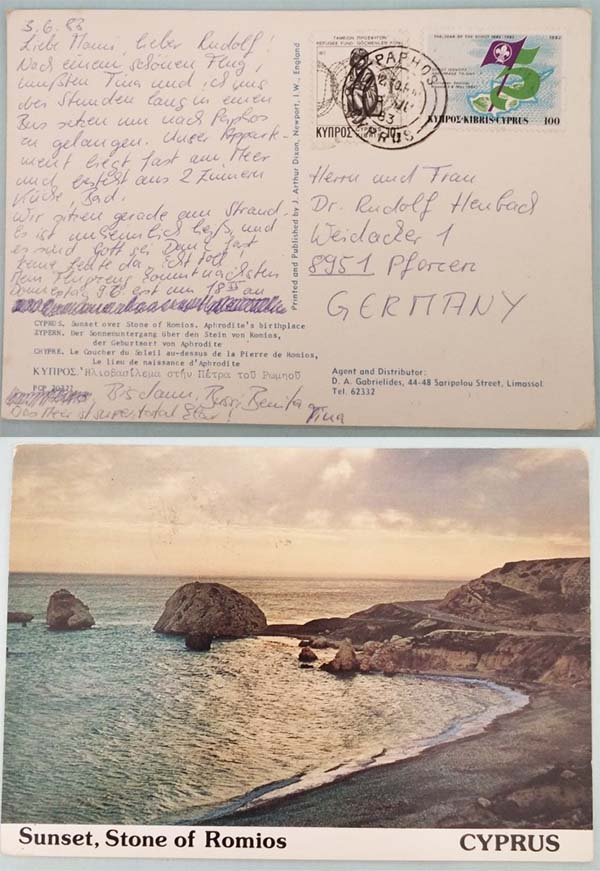 3.6.83
Liebe Mami, lieber Rudolf!
Nach einem schönen Flug,
mußten Tina und ich uns
drei Stunden lang in einen
Bus setzen um nach Paphos
zu gelangen. Unser Apparte-
ment liegt fast am Meer
und besteht aus 2 Zimmern
Küche, Bad.
Wir sitzen gerade am Strand.
Es ist unheimlich heiß, und
es sind Gott sei Dank fast
keine Leute da. Echt toll!
Mein Flugzeug kommt nächsten
Donnerstag erst um 18 an
CYPRUS. Sunset over Stone of Romios. Aphrodite's birthplace
ZYPERN. Der Sonneuntergang über den Stein von Romios,
der Geburtsort von Aphrodite
CHYPRE. Le Coucher du Soleil au-dessus de la Pierre de Romios,
Le lieu de naissance d'Aphrodite
ΚΥΠΡΟΣ. Ἡλιοβασίλεμα στὴν Πέτρα τοῦ Ρωμηοῦ
Bussi, Benita
Tina
Das Meer ist super total Star!
Printed and Published by J. Arthur Dixon, Newport, I.W. - England
ΤΑΜΕΙΟΝ ΠΡΟΣΦΥΓΩΝ
REFUGEE FUND GÖÇMENLER FONU
ΚΥΠΡΟΣ 10
PAPHOS
83
CYPRUS
THE YEAR OF THE SCOUT 1982
ΚΥΠΡΟΣ-KIBRIS-CYPRUS 100
Herrn und Frau
Dr. Rudolf Henbach
Weidacker 1
8951 Pforzen
GERMANY
Agent and Distributor:
D. A. Gabrielides, 44-48 Saripolou Street, Limassol.
Tel. 62332
Sunset, Stone of Romios
CYPRUS